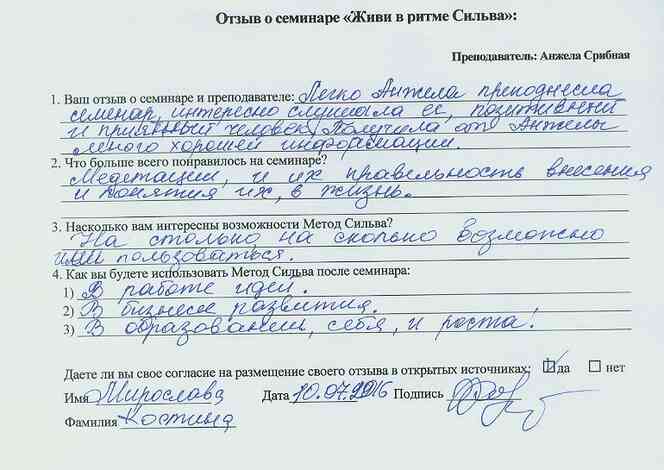 Отзыв о семинаре «Живи в ритме Сильва»:
Преподаватель: Анжела Срибная
1. Ваш отзыв о семинаре и преподавателе: Легко Анжела преподнесла
семенар, интересно слушала ее, позитивний
и приятный человек. Получила от Анжелы
много хорошей информации.
2. Что больше всего понравилось на семинаре?
Медетации, и их правельность внесения
и понятия их, в жизнь.
3. Насколько вам интересны возможности Метод Сильва?
На столько на сколько возможно
ими пользоваться.
4. Как вы будете использовать Метод Сильва после семинара:
1) В работе идей.
2) В бизнесе развития.
3) В образовании, себя, и роста!
Даете ли вы свое согласие на размещение своего отзыва в открытых источниках: да нет
Имя Мирослава Дата 10.07.2016 Подпись
Фамилия Костина